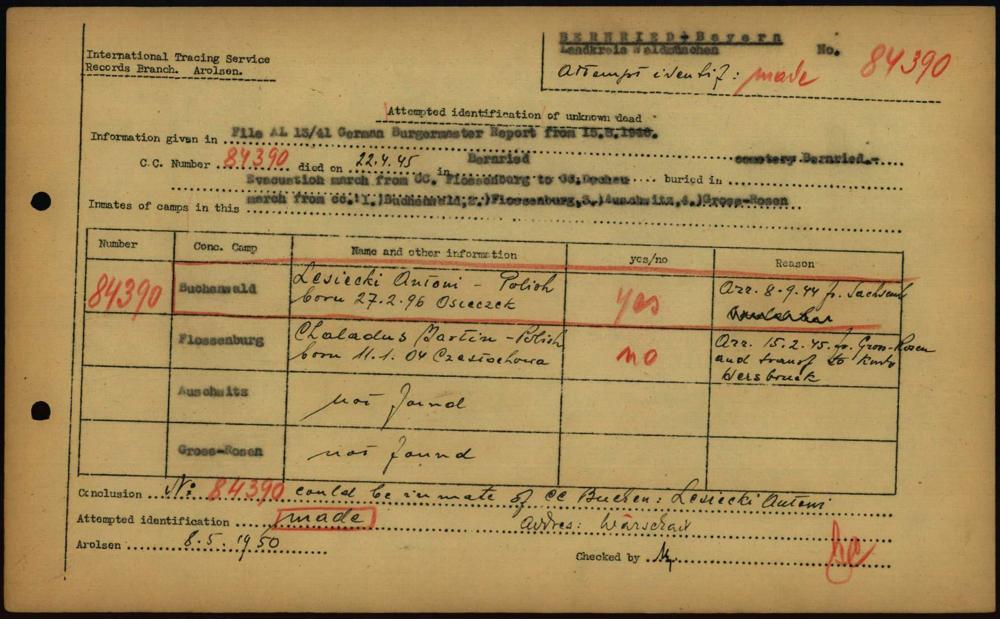 International Tracing Service
Records Branch. Arolsen.
BERNRIED-Bayern
Landkreis Waldmünchen
No. 84390
Attempt identif: made
Attempted identification of unknown dead
Information given in File AL 13/41 German Burgermaster Report from
C.C. Number 84390 died on 22.4.45 in Bernried cemetery Bernried.-
Evacuation march from CC. Flossenburg to CC. Dachau buried in
Inmates of camps in this march from CC.:1.)Buchenwald,2.)Flossenburg,3.)Auschwitz,4.)Gross-Rosen
Number Conc. Camp Name and other information yes/no Reason
84390 Buchenwald Lesiecki Antoni - Polish yes Arr. 8-9.44 fr. Sachsenh
born 27.2.96 Osieczek
Flossenburg Chaladus Martin - Polish no Arr. 15.2.45. fr. Gross-Rosen
born 11.1.04 Czestochowa and transf to Kmdo
Hersbruck
Auschwitz not found
Gross-Rosen not found
Conclusion No: 84390 could be inmate of CC Buchen: Lesiecki Antoni
Attempted identification made Addres: Warschau
Arolsen 8.5.1950 Checked by